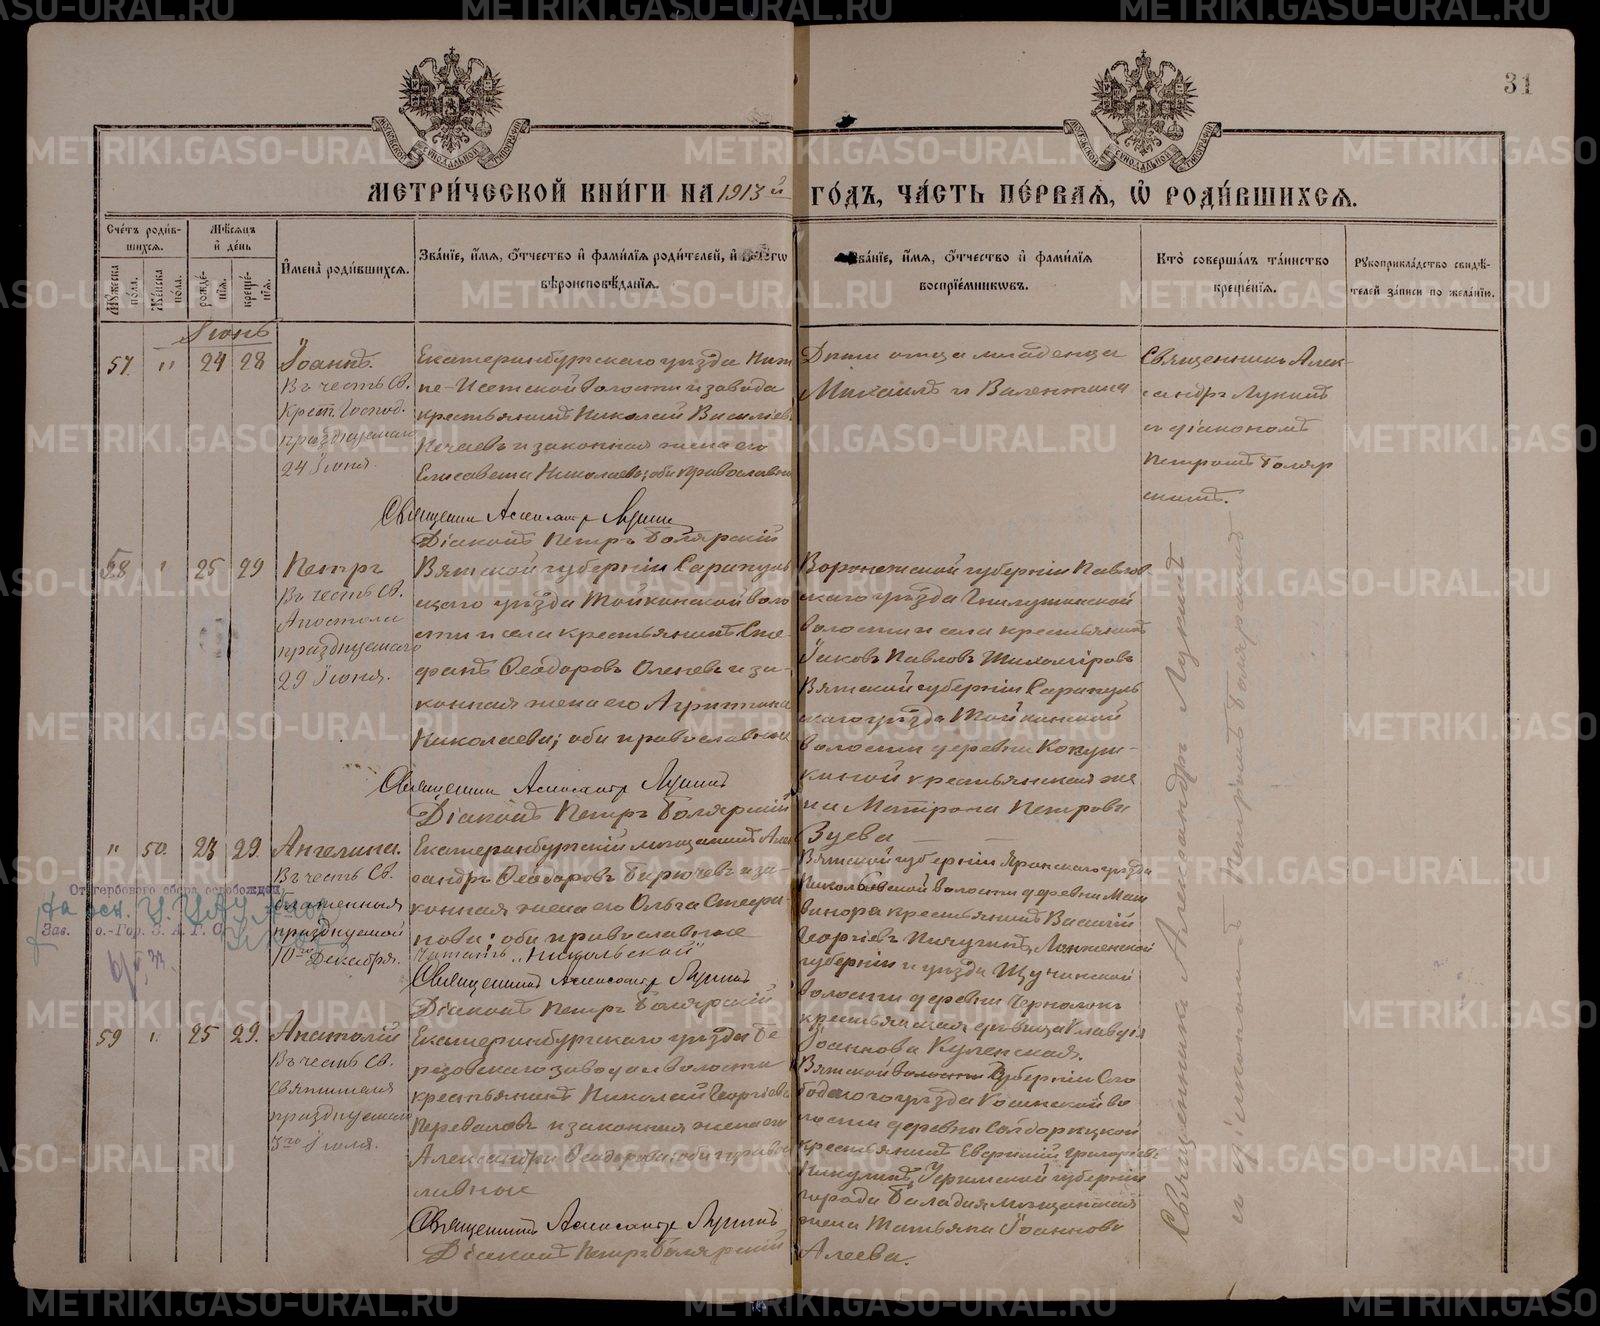 31
МЕТРИ́ЧЕСКОЙ КНИ́ГИ НА 1913 й ГО́ДЪ, ЧА́СТЬ ПЕ́РВАЯ, Ѡ РОДИ́ВШИХСЯ.
Счетъ роди́в-
шихся.
Мужеска по́ла.
Же́нска по́ла.
Мѣсяцъ
и де́нь
рожде́-
нія.
креще́-
нія.
Имена роди́вшихся.
Зва́ніе, и́мя, о́тчество и фами́лія роди́телей, и
вѣроисповѣ́данія.
Зва́ніе, и́мя, о́тчество и фами́лія
воспріе́мниковъ.
Кто̀ соверша́лъ та́инство
креще́нія.
Рукоприкла́дство свидѣ́-
телей за́писи по жела́нію.
Іюнь
57. " 24 28
Іоаннъ.
Въ честь Св.
Крест. Господ.
празднуемаго
24 Іюня.
Екатеринбургскаго уѣзда Ниж
не-Исетской волости и завода
крестьянинъ Николай Василіев.
Нечаевъ и законная жена его
Елисавета Николаева; оба православн
Священник Александр Лукин
Діаконъ Петръ Боляр​скій
Дѣти отца младенца
Михаилъ и Валентина
Священникъ Алек-
сандръ Лукинъ
и діакономъ
Петромъ Боляр
скимъ.
58 " 25 29
Петръ
Въ честь Св.
Апостола
празднуемаго
29 Іюня.
Вятской губерніи Сарапуль
скаго уѣзда Мойкинской воло
сти и села крестьянинъ Сте-
фанъ Ѳеодоровъ Оленевъ и за-
конная жена его Агрипина
Николаева; оба православные
Священник Александр Лукинъ
Діаконъ Петръ Болярскій
Воронежской губерніи Павлов
скаго уѣзда
волости и села крестьянинъ
Іаковъ Павловъ Тихоміровъ
Вятской губерніи Сарапуль
скаго уѣзда Мойкинской
волости деревни Кокуш-
киной крестьянская же
на Матрона Петрова
Зуева
" 50. 23 29.
Ангелина.
Въ честь Св.
блаженная
празднуемой
10го Декабря.
Екатеринбургскій мѣщанинъ Алек
сандръ Ѳеодоровъ Бирючевъ и за-
конная жена его Ольга Стефа-
нова; оба православные
Читать „Никольской"
Священникъ Александр Лукинъ
Діаконъ Петръ Болярскій
Вятской губерніи Яранскаго уѣзда
волости деревни
крестьянинъ Василій
Георгіевъ Пичугинъ, Ломженской
губерніи и уѣзда Щучинской
волости деревни Чернолокъ
крестьянская дѣвица Клавдія
Іоаннова
От гербового сбора освобожден
Зав. о.-Гор. З. А. Г. С.
59 1. 25 29.
Анатолій
Въ честь Св.
Святителя
празднуемаго
3го Іюля.
Екатеринбургскаго уѣзда Бе
резовскаго завода и волости
крестьянинъ Николай Георгіевъ
Переваловъ и законная жена его
Александра Ѳеодорова; оба правос
лавные
Священникъ Александр Лукинъ
Діаконъ Петръ Болярскій
Вятской волости губерніи Сло
бодскаго уѣзда
лости деревни
крестьянинъ Евгеній Григорьевъ
Пикулинъ, Уфимской губерніи
города мѣщанская
жена Татьяна Іоаннова
Алеева.
Священникъ Александръ Лукинъ
и діаконъ Петръ Болярскій
METRIKI.GASO-URAL.RU